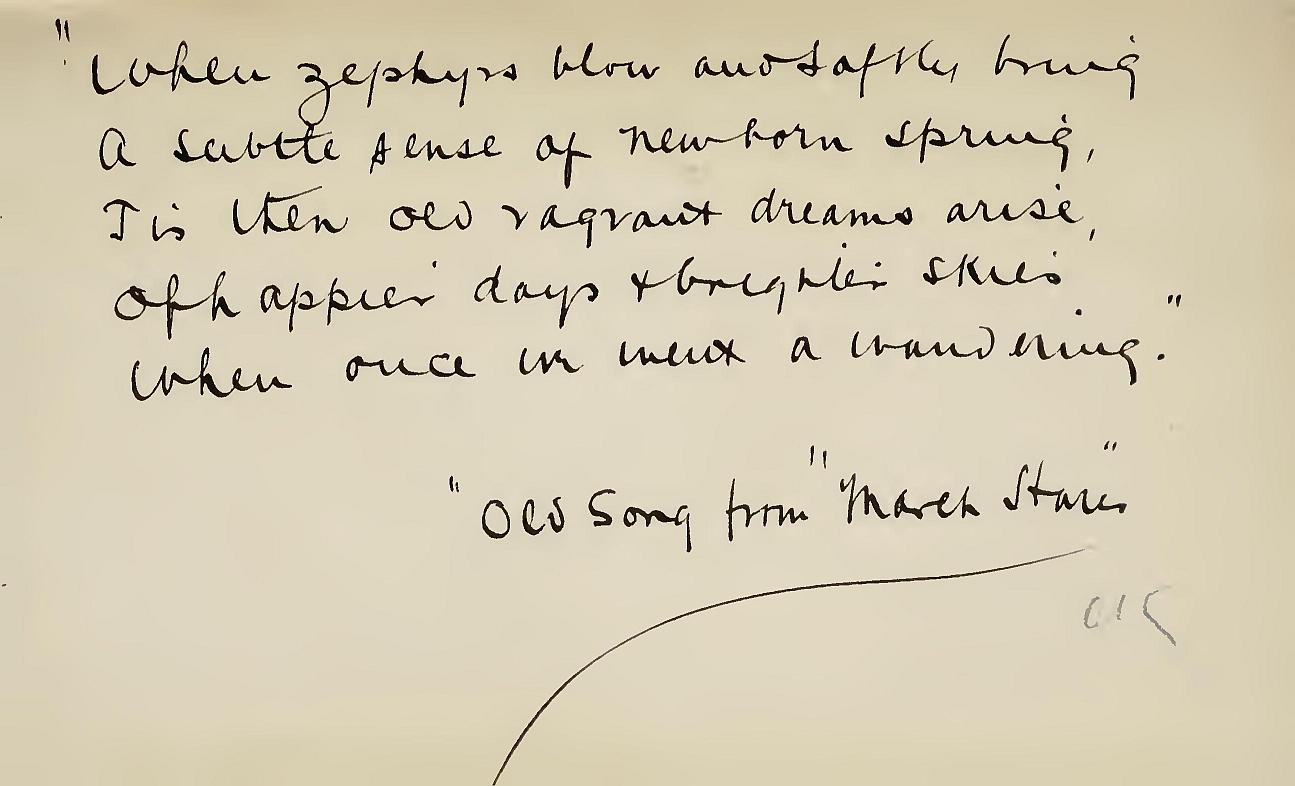 "When zephyrs blow and softly bring
A subtle sense of newborn spring,
Tis then old vagrant dreams arise,
Of happier days & brighter skies
When once we went a wandering."
"Old Song from "March Stars"